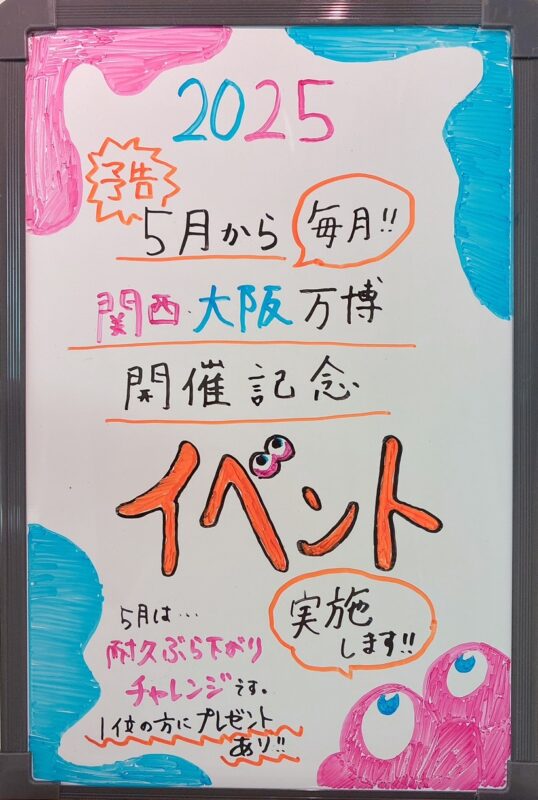 2025
予告
5月から 毎月!!
関西・大阪万博
開催記念
イベント
実施
します!!
5月は…
耐久ぶら下がり
チャレンジです。
1位の方にプレゼント
あり!!